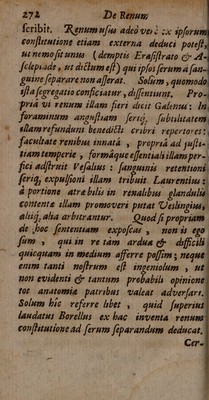 272 De Renum
scribit. Renum usui adeò verè ex ipsorum
constitutione etiam externa deduci potest,
ut nemo sit unus (demptis Erasistrato & A-
sclepiade, ut dictum est) qui ipsos serum a san-
guine separare non asserat. Solùm, quomodo
ista segregatio conficiatur, dissentiunt. Pro-
priâ vi renum illam fieri dicit Galenus: In
foraminum angustiam seriq́; subtilitatem
illam refundunt benedicti cribri repertores:
facultate renibus innatâ, propriâ ad justi-
tiam temperie, formâque essentiali illam per-
fici adstruit Vesalius: sanguinis retentioni
seriq́; expulsioni illam tribuit Lauentius:
à portione atræ bilis in renalibus glandulis
contentæ illam promoveri putat Veslingius,
aliiq́; alia arbitrantur. Quod si propriam
de hoc sententiam exposcas, non is ego
sum, qui in re tàm arduâ & difficili
quicquam in medium afferre possim; neque
enim tanti nostrum est ingeniolum, ut
non evidenti & tantùm probabili opinione
tot anatomiæ patribus valeat adversari.
Solùm hîc referre libet, quid superiùs
laudatus Borellus ex hac inventa renum
constitutione ad serum separandum deducat.
Cer-